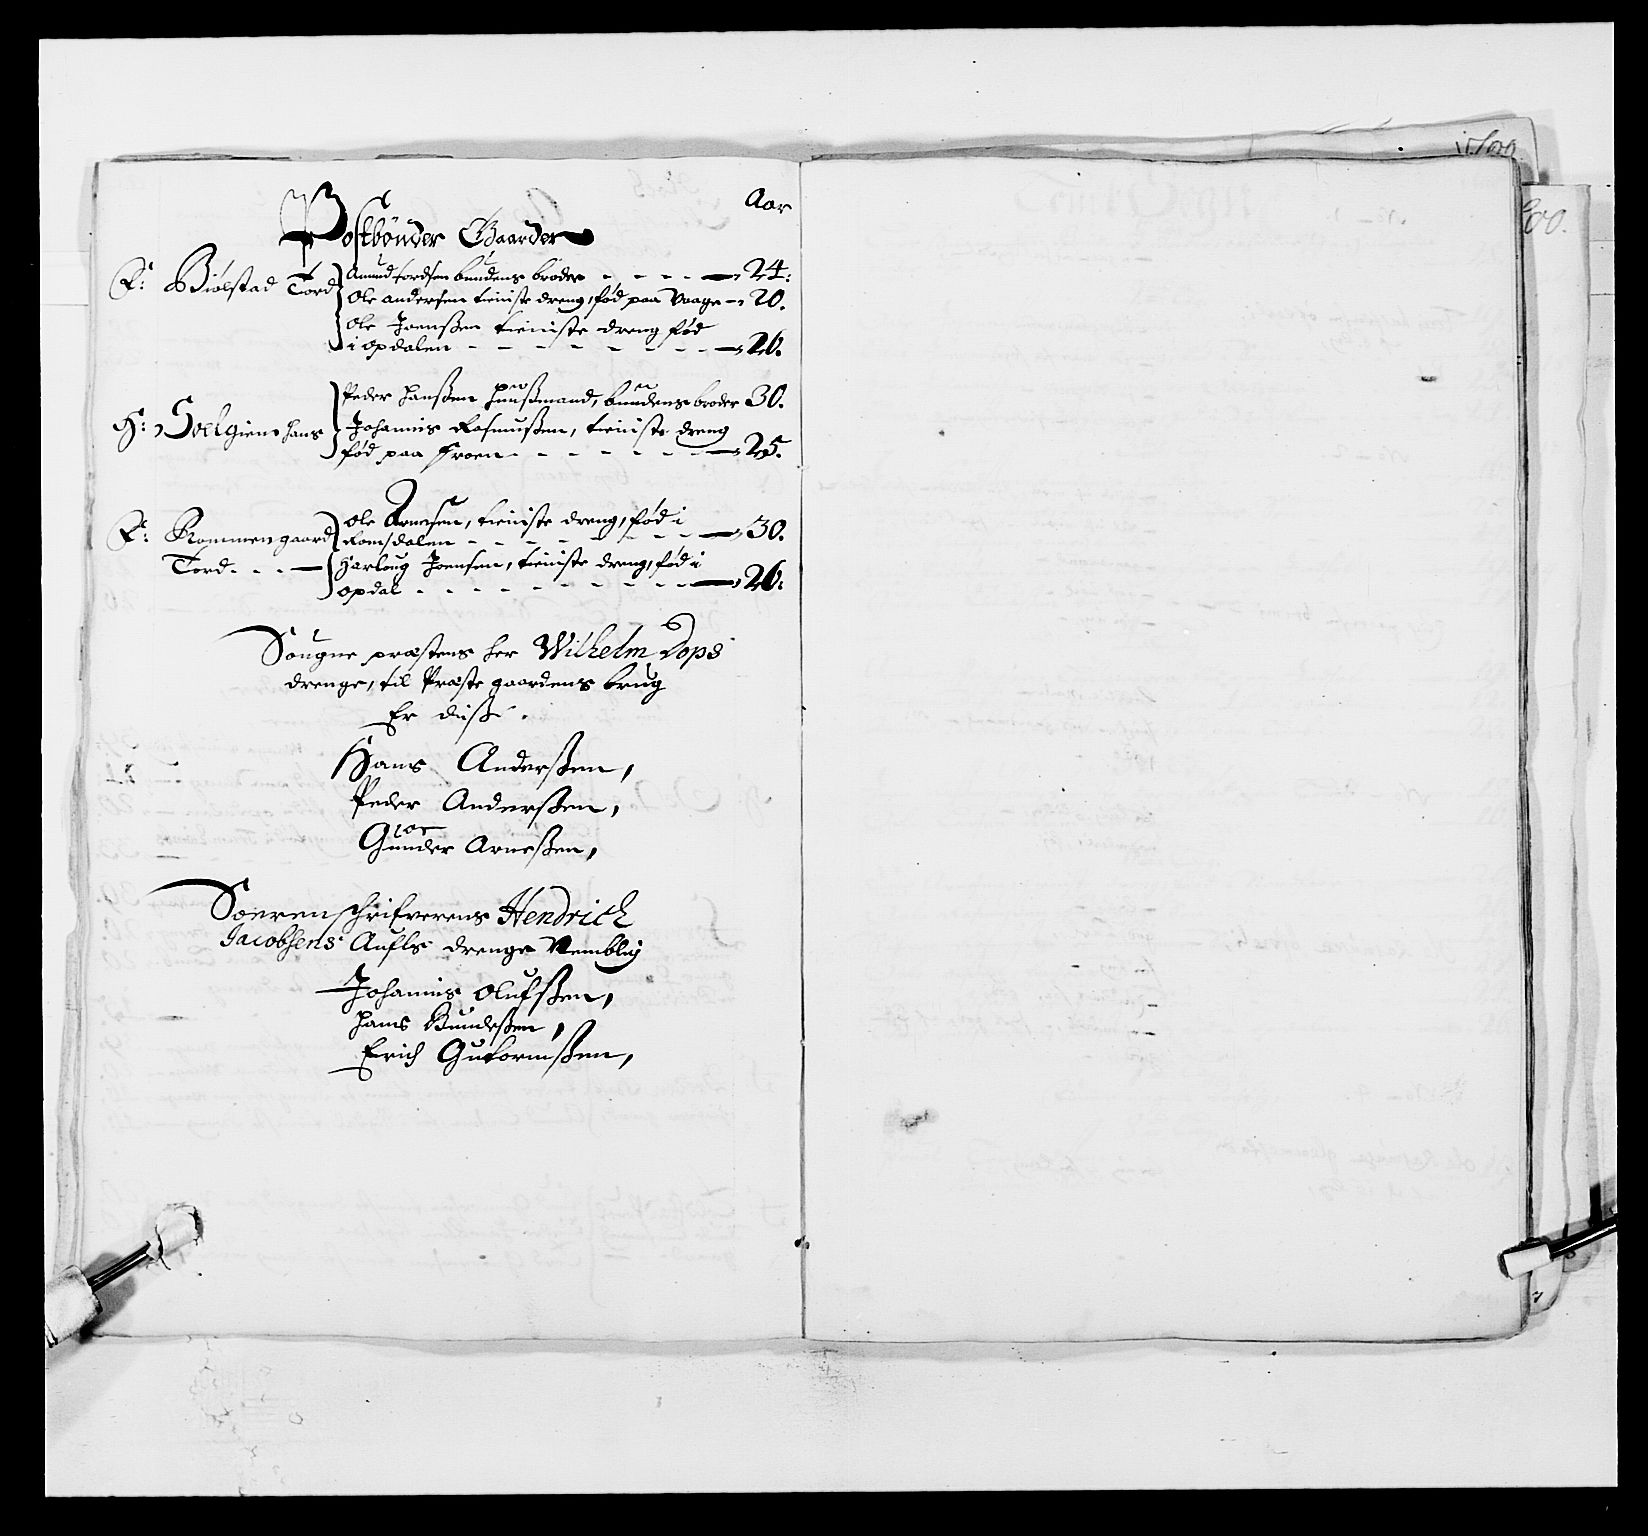 Aar
Postbønder Gaarder
F: Biølstad Tord
Amund tordsen bundens broder - - - - 24:
Ole andersen tieniste dreng, fød paa Vaage - 20.
Ole Joenßen tieniste dreng fød
i opdalen - - - - - - - 26.
H: Soelgien hans
Peder Hanßen huußmand, bundens broder 30.
Johannis Rasmußen, tieniste dreng
fød paa Froen - - - - - - 25.
F: Rommengaard
Tord - - -
Ole Arnesen, tieniste dreng, fød i
Romsdalen - - - - - - - 30.
Harloug Joensen, tieniste dreng, fød i
opdal - - - - - - - - 26:
Sougne præstens her Wilhelm Dops
drenge, til Præste gaardens brug
Er disße.
Hans Anderßen,
Peder Anderßen,
Gunder Arneßen,
Soerenschrifverens Hendrich
Jacobsens Aufls drenge Nemblig
Johannis Olufsßen,
Hans Bundeßen,
Erich Gutormßen,